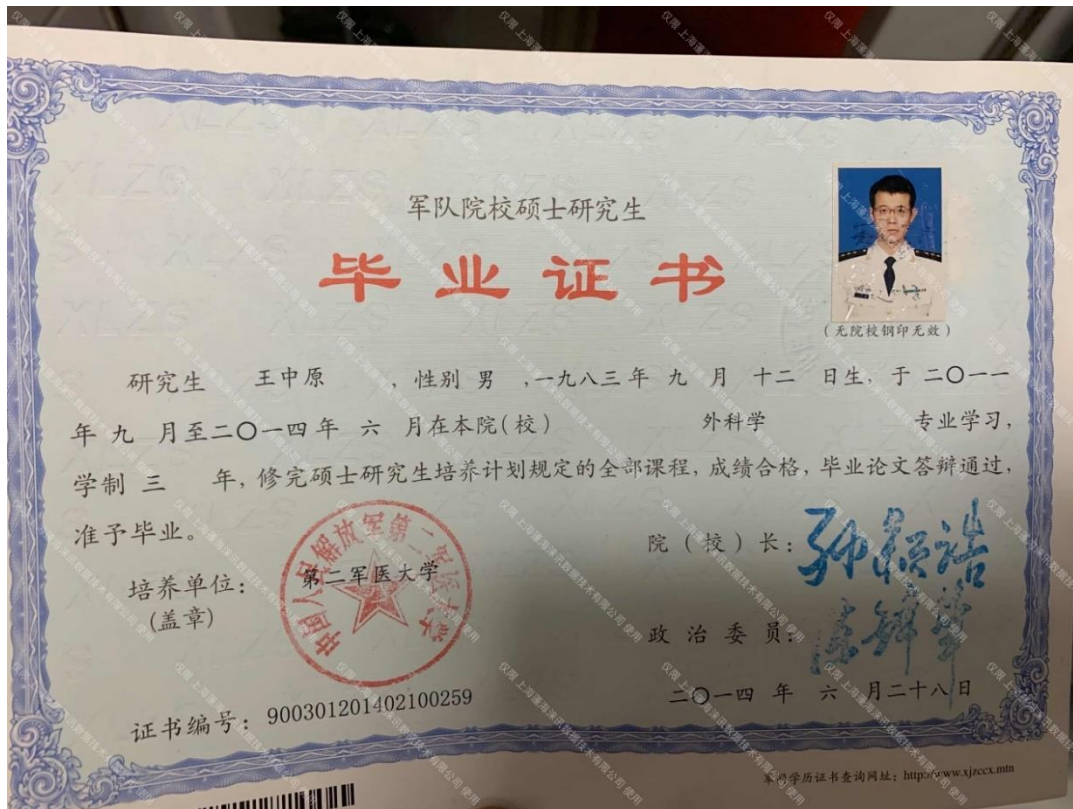 军队院校硕士研究生
毕业证书
(无院校钢印无效)
研究生 王中原 , 性别 男 , 一九八三年 九 月 十二 日生, 于 二〇一一
年 九 月至二〇一四年 六 月在本院(校) 外科学 专业学习,
学制 三 年, 修完硕士研究生培养计划规定的全部课程, 成绩合格, 毕业论文答辩通过,
准予毕业。
院(校)长: 孙颖浩
培养单位: 第二军医大学
(盖章)
中国人民解放军第二军医大学
政治委员:
二〇一四 年 六 月二十八日
证书编号: 900301201402100259
军网学历证书查询网址: http://www.xjzccx.mtn
仅限 上海蓬海涞讯数据技术有限公司 使用
XLZS